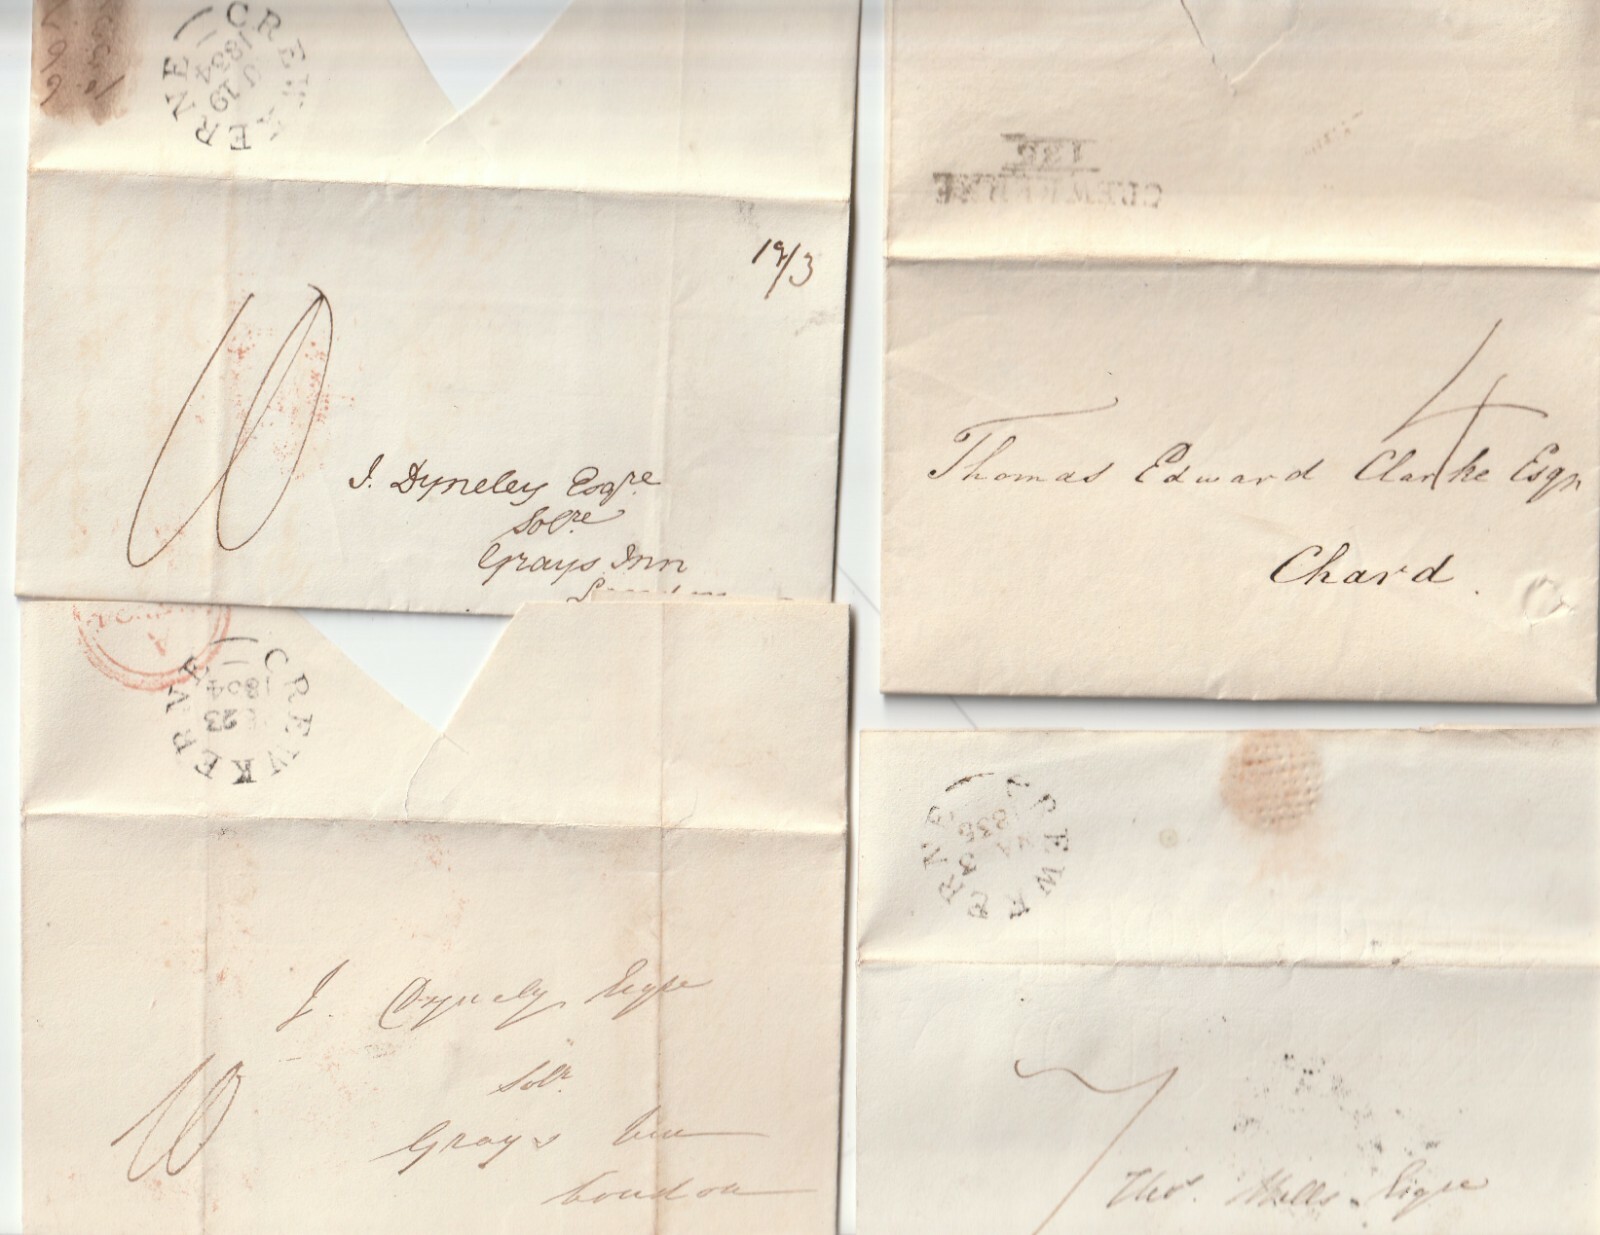 CREWKERNE
19
1834
19/3
10
J. Dyneley Esqre
Solre
Grays Inn
London
CREWKERNE
23
1834
J. Dyneley Esqre
Solr.
10
Grays Inn
London
136
CREWKERNE
4
Thomas Edward Clarke Esqr
Chard.
CREWKERNE
1838
7
Thos. Mills Esqre